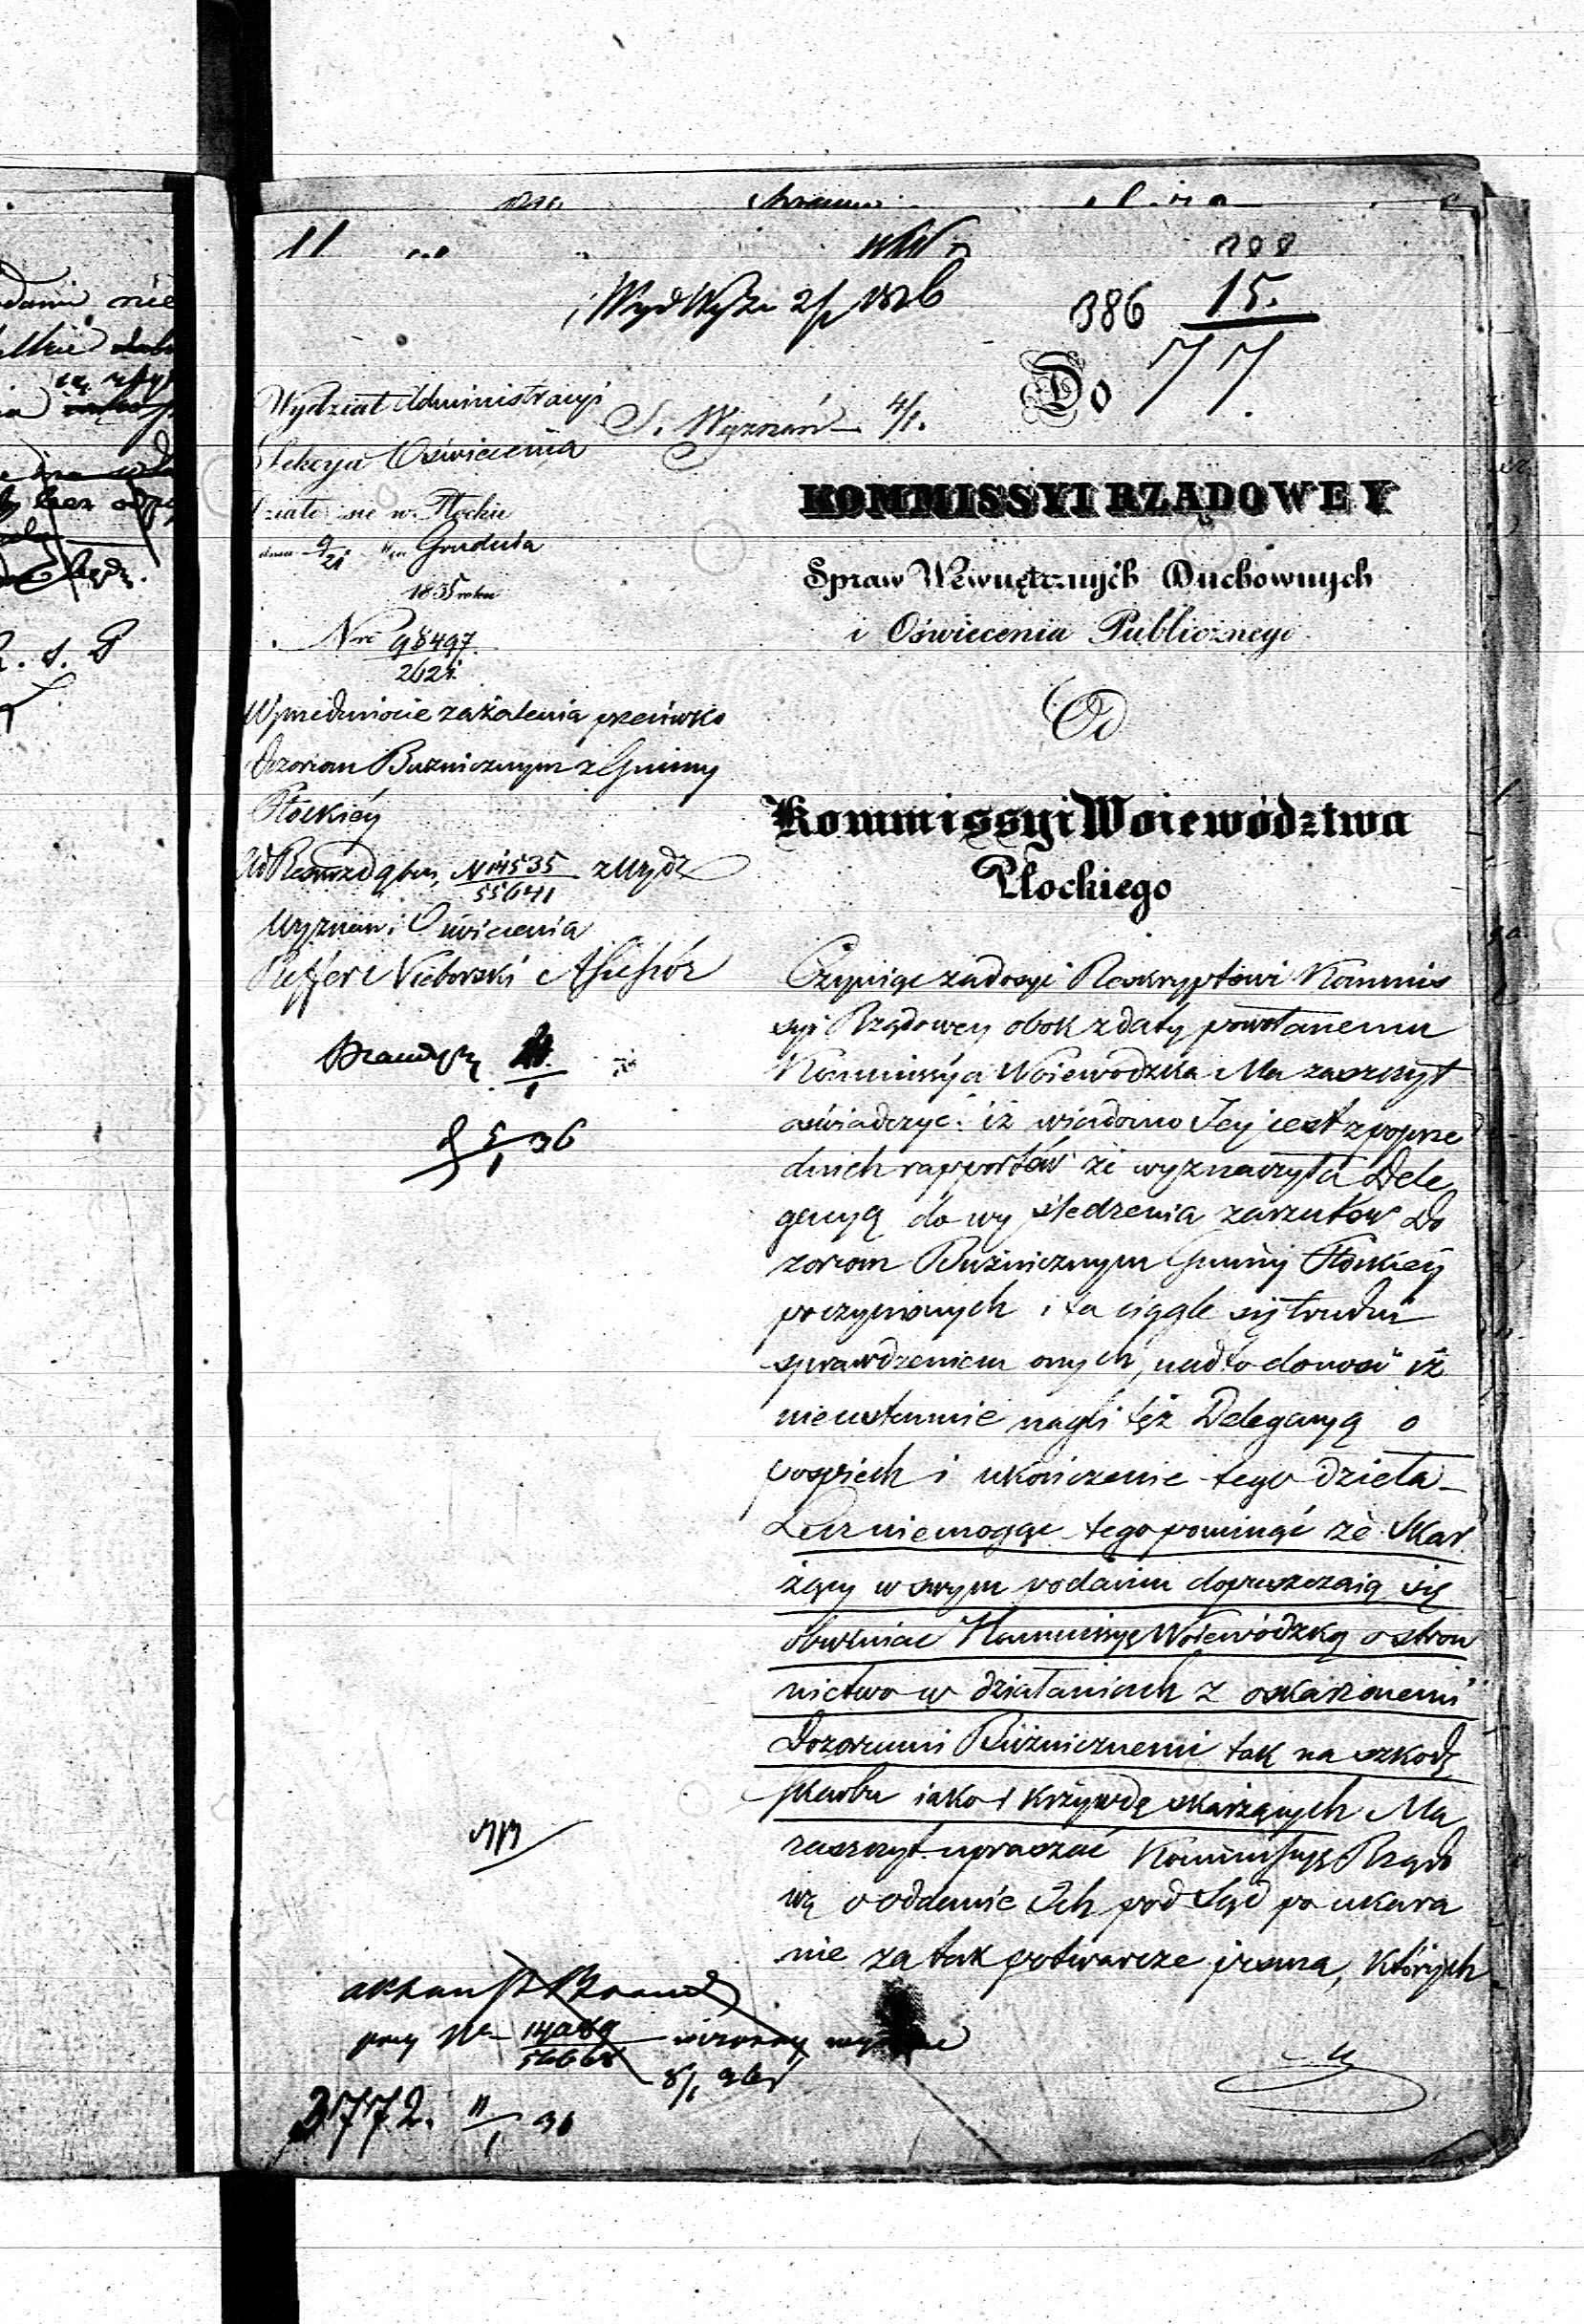 11
386 15.
Do 77.
Wydział Administracyi
S. Wyznań 4/1.
Sekcya Oświecenia
Działo się w Płocku
dnia 9/21 Grudnia
1835 roku
Nro 98497
2621.
KOMMISSYI RZĄDOWEY
Spraw Wewnętrznych Duchownych
i Oświecenia Publicznego
Od
Kommissyi Woiewództwa
Płockiego
W przedmiocie zażalenia przeciwko
Dozorom Bużnicznym z Gminy
Płockiéy
N 14535 z Wydz
55641
Wyznań i Oświecenia
Refferi Nieborski Assessór
5/1 36
Czyniąc zadosyć Reskryptowi Kommis
syi Rządowey obok z daty powołanemu
Kommissya Woiewódzka Ma zaszczyt
oświadczyć: iż wiadomo Jey iest z poprze
dnich rapportów że wyznaczyła Dele
gacyą do wyśledzenia zarzutów Do
zorom Bużnicznym Gminy Płockiéy
poczynionych i ta ciągle się trudni
sprawdzeniem onych, nadto donosi iż
nieustannie nagli téż Delegacyą o
pospiech i ukończenie tego dzieła –
Lecz niemogąc tego pominąć że Skar
żący w swym podaniu dopuszczaią się
obwiniać Kommissyę Woiewódzką o stron
nictwo w działaniach z oskarżonemi
Dozorami Bużnicznemi tak na szkodę
skarbu iako i krzywdę skarżących Ma
zaszczyt upraszać Kommissyę Rządo
wą o oddanie Ich pod Sąd po ukara
nie za tak potwarcze pisma, których
przy Nro 14089
3772. 11/1 36